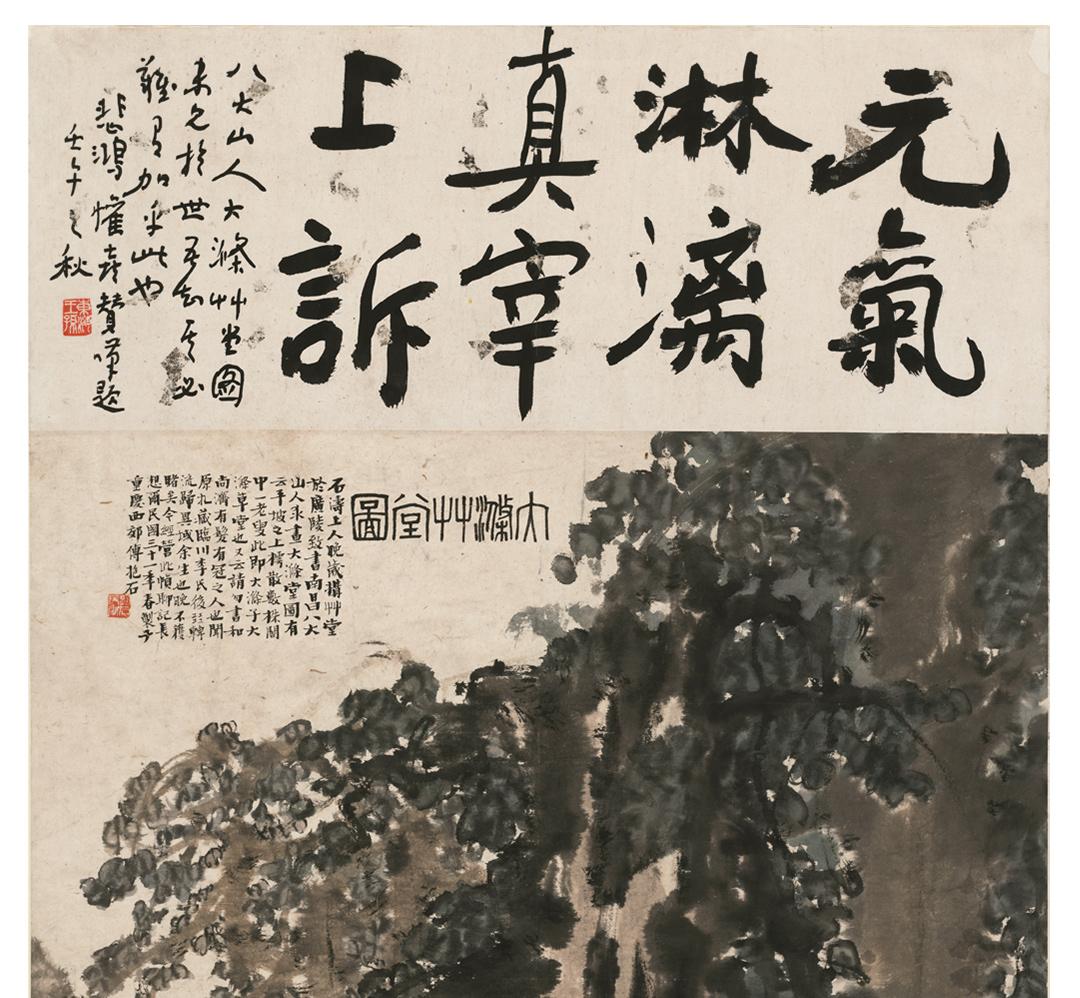 元氣
淋漓
真宰
上訴
八大山人大滌艸堂圖
未見於世吾知其必
難有加乎此也
悲鴻懽喜贊嘆題
壬午之秋
東海王孫
大滌艸堂圖
石濤上人晚歲構艸堂
於廣陵致書南昌八大
山人求畫大滌堂圖有
云平坡之上樗散數株閣
中一老叟此即大滌子大
滌草堂也又云請勿書和
尚濟有髮有冠之人也聞
原札藏臨川李氏後竝轉
流歸異域余生也晚不獲
睹矣今經營此幀聊記長
想爾民國三十一年春製于
重慶西郊傅抱石